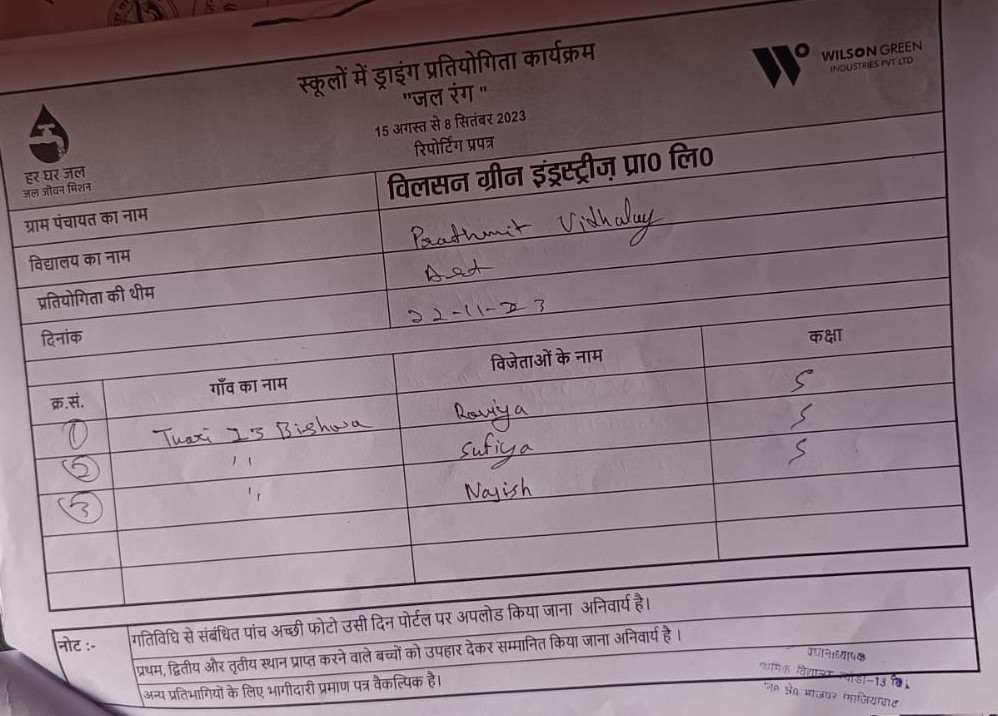 स्कूलों में ड्राइंग प्रतियोगिता कार्यक्रम
"जल रंग "
15 अगस्त से 8 सितंबर 2023
रिपोर्टिंग प्रपत्र
WILSON GREEN
INDUSTRIES PVT LTD
हर घर जल
जल जीवन मिशन
विलसन ग्रीन इंड्रस्ट्रीज़ प्रा0 लि0
ग्राम पंचायत का नाम
विद्यालय का नाम Prathmit Vidhalay
प्रतियोगिता की थीम
दिनांक 22-11-23
क्र.सं. गाँव का नाम विजेताओं के नाम कक्षा
1 Bishwa Raviya 5
2 '' Sufiya 5
3 '' Najish 5
नोट :- गतिविधि से संबंधित पांच अच्छी फोटो उसी दिन पोर्टल पर अपलोड किया जाना अनिवार्य है।
प्रथम, द्वितीय और तृतीय स्थान प्राप्त करने वाले बच्चों को उपहार देकर सम्मानित किया जाना अनिवार्य है ।
अन्य प्रतिभागियों के लिए भागीदारी प्रमाण पत्र वैकल्पिक है।
प्रधानाध्यापक